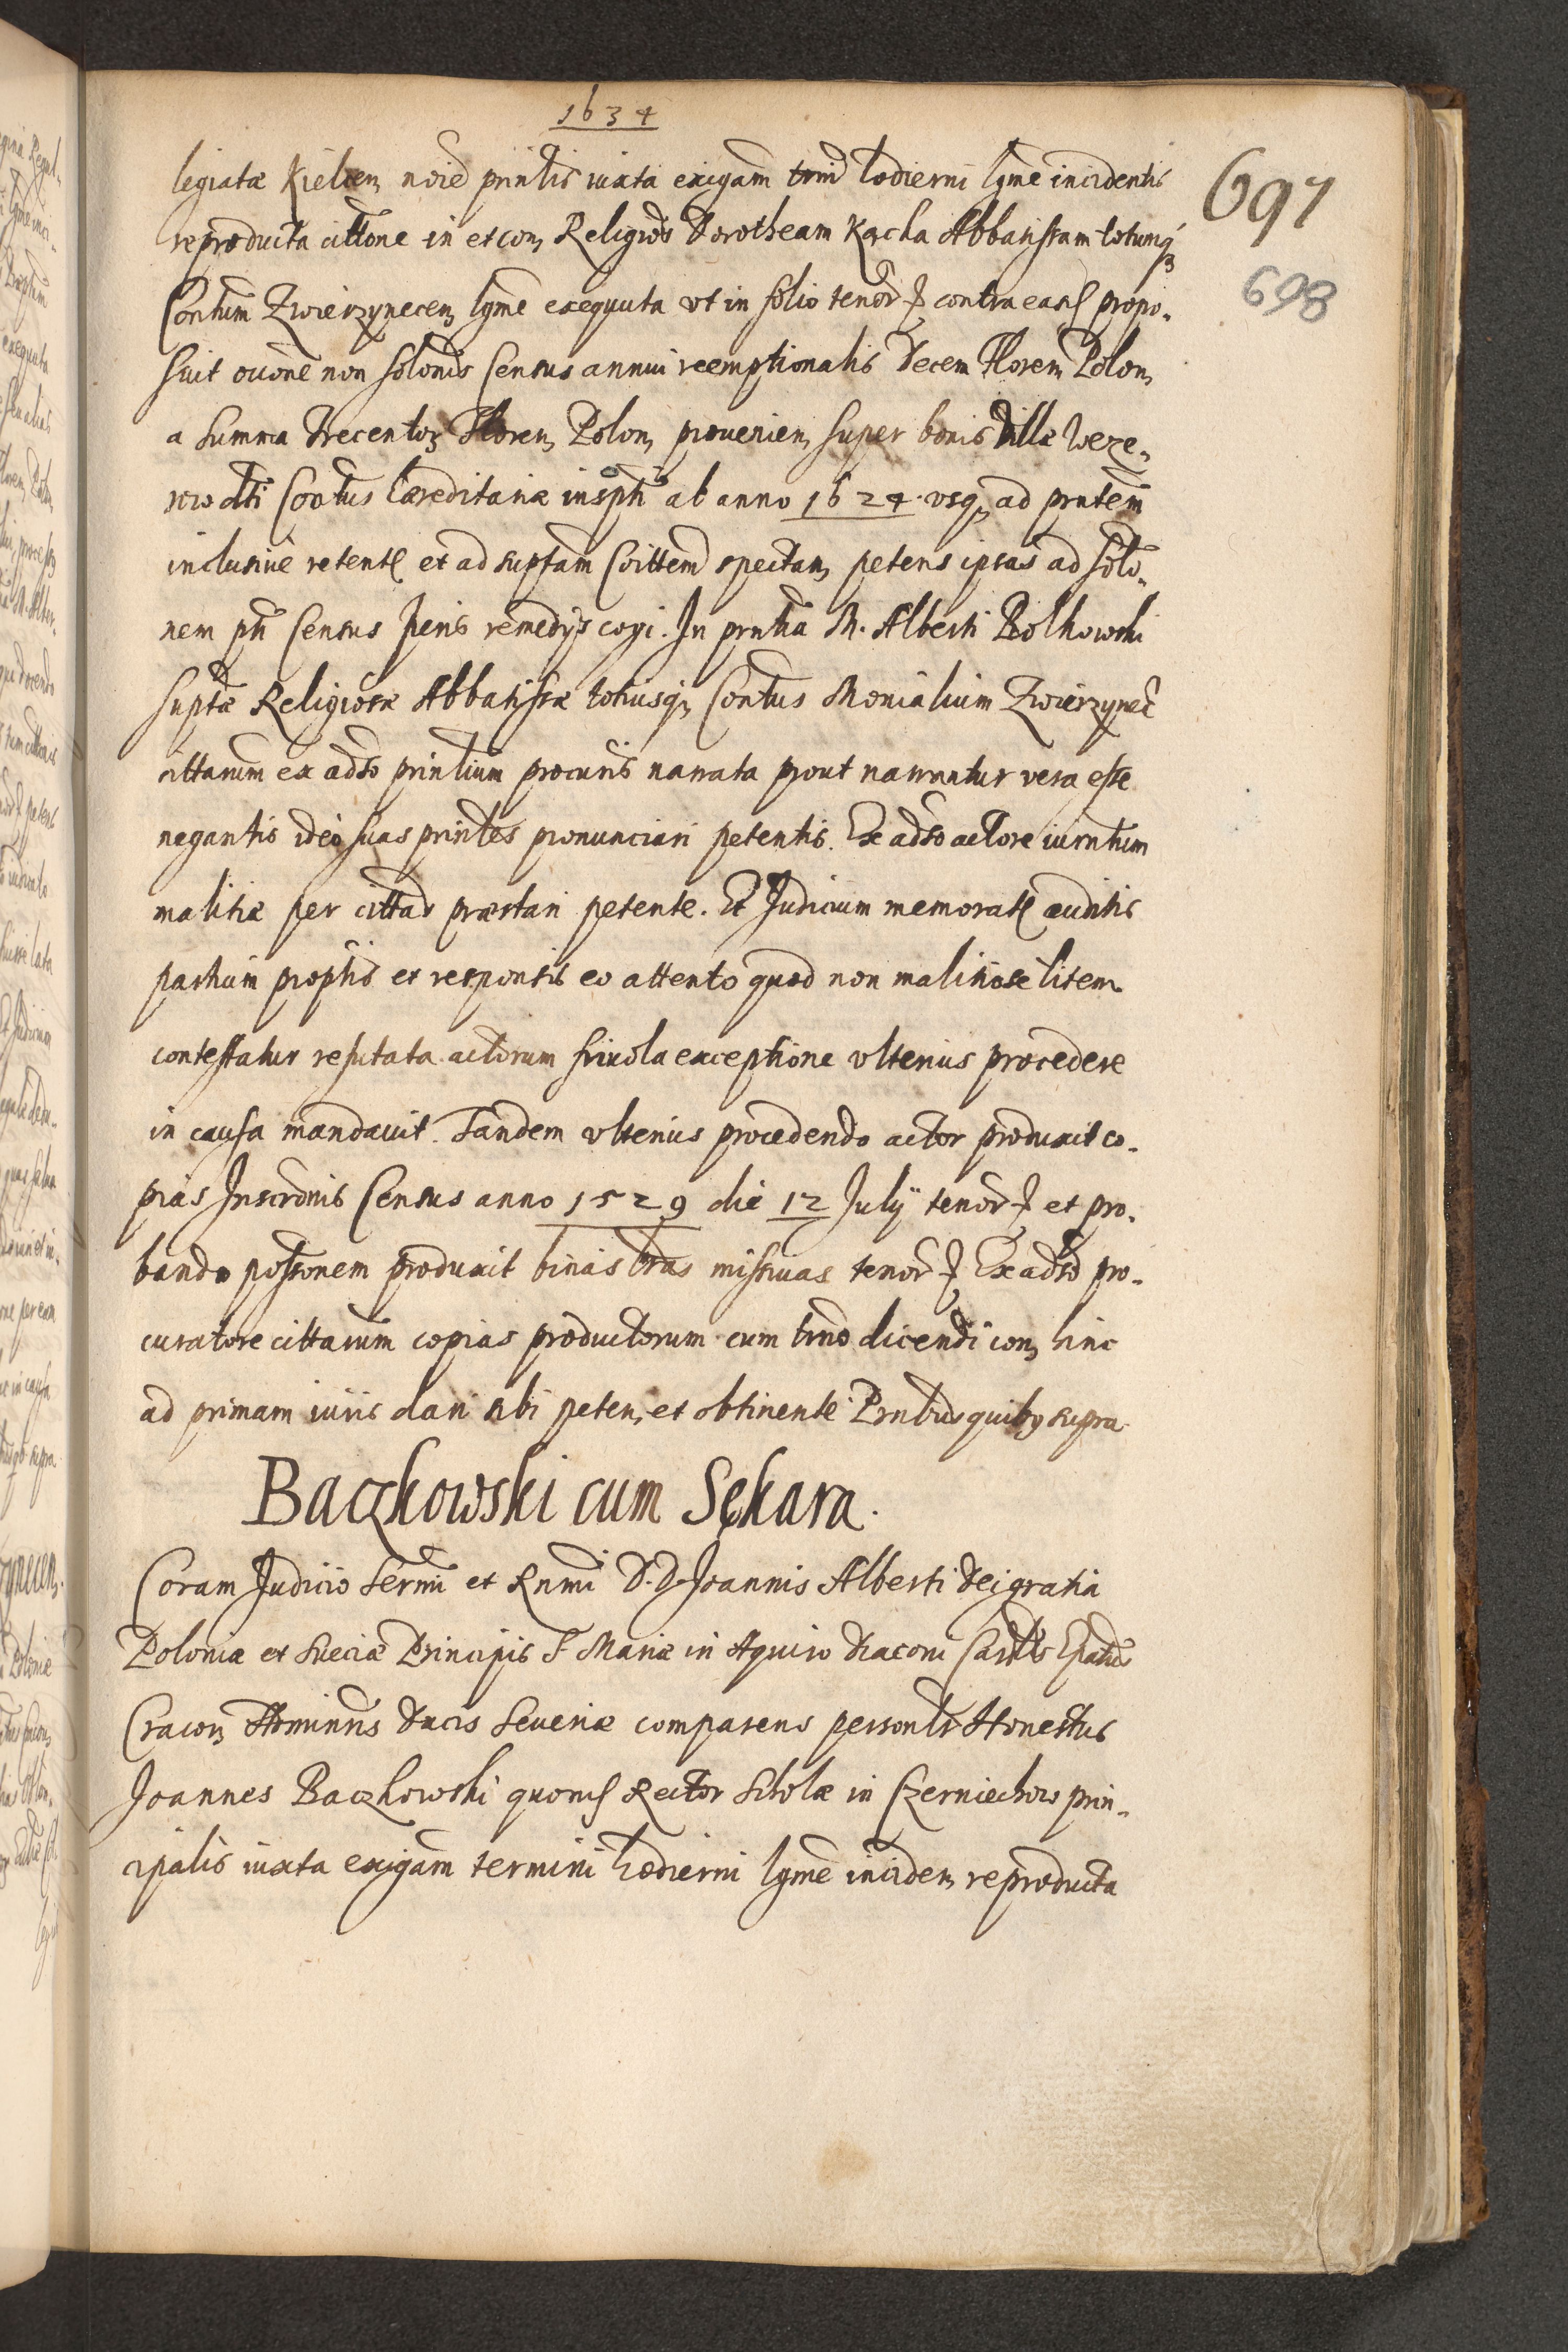 1634
legiatæ Kielcen noie prinlis iuxta exigam trmi hodierni lgme incidentis
697
reproducta cittone in et con Religios Dorotheam Kącka Abbatissam totumq
698
Contum Zwierzynecen lgme exequuta vt in folio tenor contra eas propo-
suit ouone non solonis Census annui reemptionalis decem Floren Polon
a summa Trecentor Floren Polon prouenien super bonis Villæ
dti Contus hæreditariæ inspti ab anno 1624 vsq ad prntem
inclusiuè retent et ad suptam Coittem spectan petens ipsas ad solo-
nem pti Census Juris remedijs cogi. In prntia M. Alberti Bolkowski
suptæ Religiosæ Abbatissæ totiusq Contus Monialium Zwierzynec
cittarum ex adso prinlium procuris narrata prout narrantur vera esse
negantis ideo suas prinles pronunciari petentis. Ex adso actore iurntum
malitiæ per cittas præstari petente. Et Judicium memorat auditis
partium proptis et responsis eo attento quod non malitiose litem
contestatur refutata actorum friuola exceptione vlterius procedere
in causa mandauit. Tandem vlterius procedendo actor produxit co-
pias Inscronis Census anno 1529 die 12 Julij tenor et pro-
bando possonem produxit binas lras missiuas tenor Ex adso pro-
curatore cittarum copias productorum cum trno dicendi con hinc
ad primam iuris dari sibi peten et obtinente Prntibus quibus supra
Baczkowski cum Sękara.
Coram Judicio Sermi et Rnmi D. D. Joannis Alberti Dei gratia
Poloniæ et Sueciæ Principis S. Mariæ in Aquiro Diaconi Cardlis Epatus
Cracou Adminris Ducis Seueriæ comparens personlr Honestus
Joannes Baczkowski quon Rector Scholæ in Czerniechow prin-
cipalis iuxta exigam termini hodierni lgme inciden reproducta